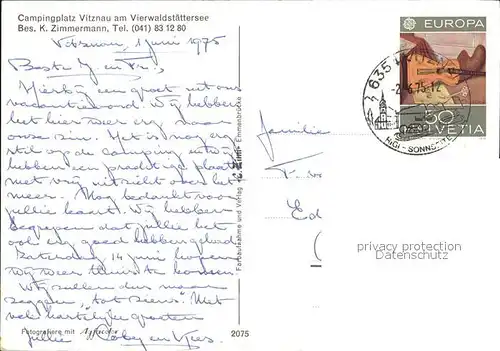 Campingplatz Vitznau am Vierwaldstättersee
Bes. K. Zimmermann, Tel. (041) 83 12 80
Vitznau, 1 juni 1975
Beste
Hierbij een groet uit ons
vacantieoord. Wij hebben
het hier zeer erg naar
onze zin. Het is nog erg
stil op de camping en wij
hebben een prachtige plaats
met vrij uitzicht over het
meer. Nog bedankt voor
jullie kaart. Wij hebben
begrepen dat jullie het
ook erg goed hebben gehad.
Zaterdag 14 juni hopen
wij weer thuis te komen.
Wij zullen dus maar
zeggen, "tot ziens". Met
veel hartelijke groeten
jullie Coby en Kees.
Fotografiere mit
2075
Farbaufnahme und Verlag
Emmenbrücke
familie
Ed
(
EUROPA
50
HELVETIA
635
-2.6.75
RIGI - SONNENSEITE
personal data
Copyright protection